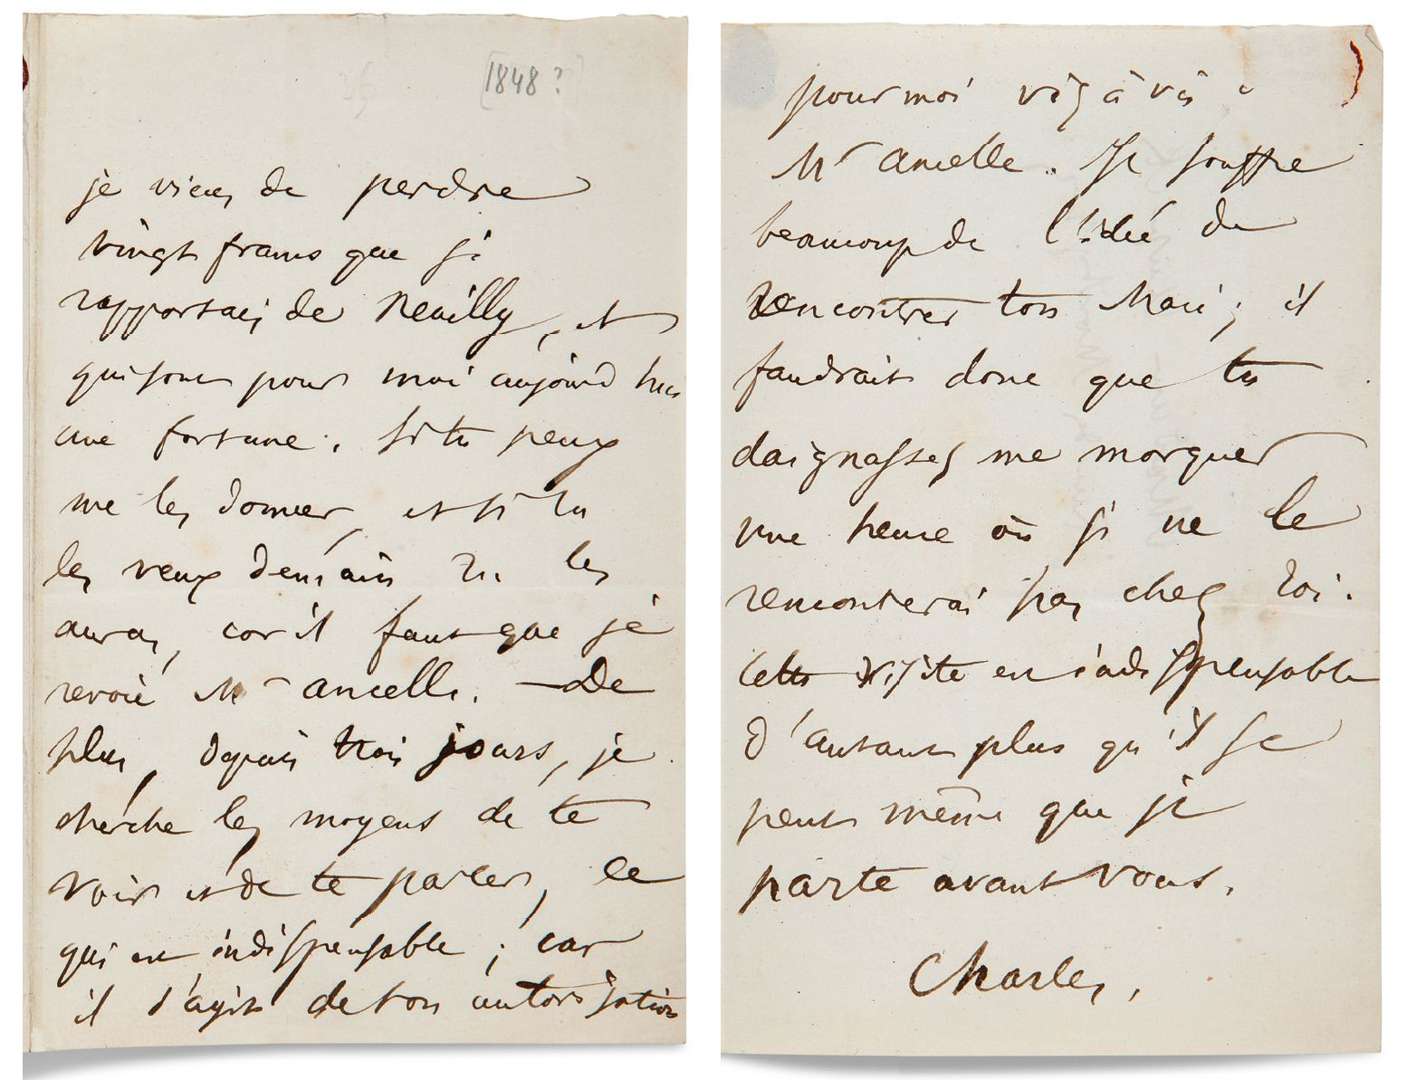 [1848?]
je viens de perdre
vingt francs que je
rapportais de Neuilly, et
qui sont pour moi aujourd'hui
une fortune. Si tu peux
me les donner, et si tu
les veux demain tu les
auras, car il faut que je
revoie Mr Ancelle. — De
plus, depuis trois jours, je
cherche les moyens de te
voir et de te parler, ce
qui est indispensable ; car
il s'agit de ton autorisation
pour moi vis à vis
Mr Ancelle. Je souffre
beaucoup de l'idée de
rencontrer ton Mari ; il
faudrait donc que tu
daignasses me marquer
une heure où je ne le
rencontrerai pas chez toi.
Cette visite est indispensable
d'autant plus qu'il se
peut même que je
parte avant vous.
Charles.